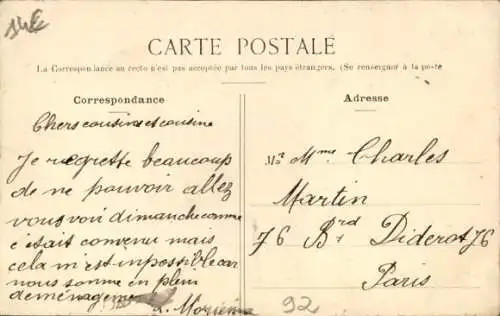 14€
CARTE POSTALE
La Correspondance au recto n'est pas acceptée par tous les pays étrangers. (Se renseigner à la poste
Correspondance
Chers cousins et cousine
Je regrette beaucoup
de ne pouvoir allez
vous voir dimanche comme
c'était convenu mais
cela m'est inpossible car
nous somme en plein
deménageme
Adresse
Mr Mme Charles
Martin
76 Brd Diderot 76
Paris
92